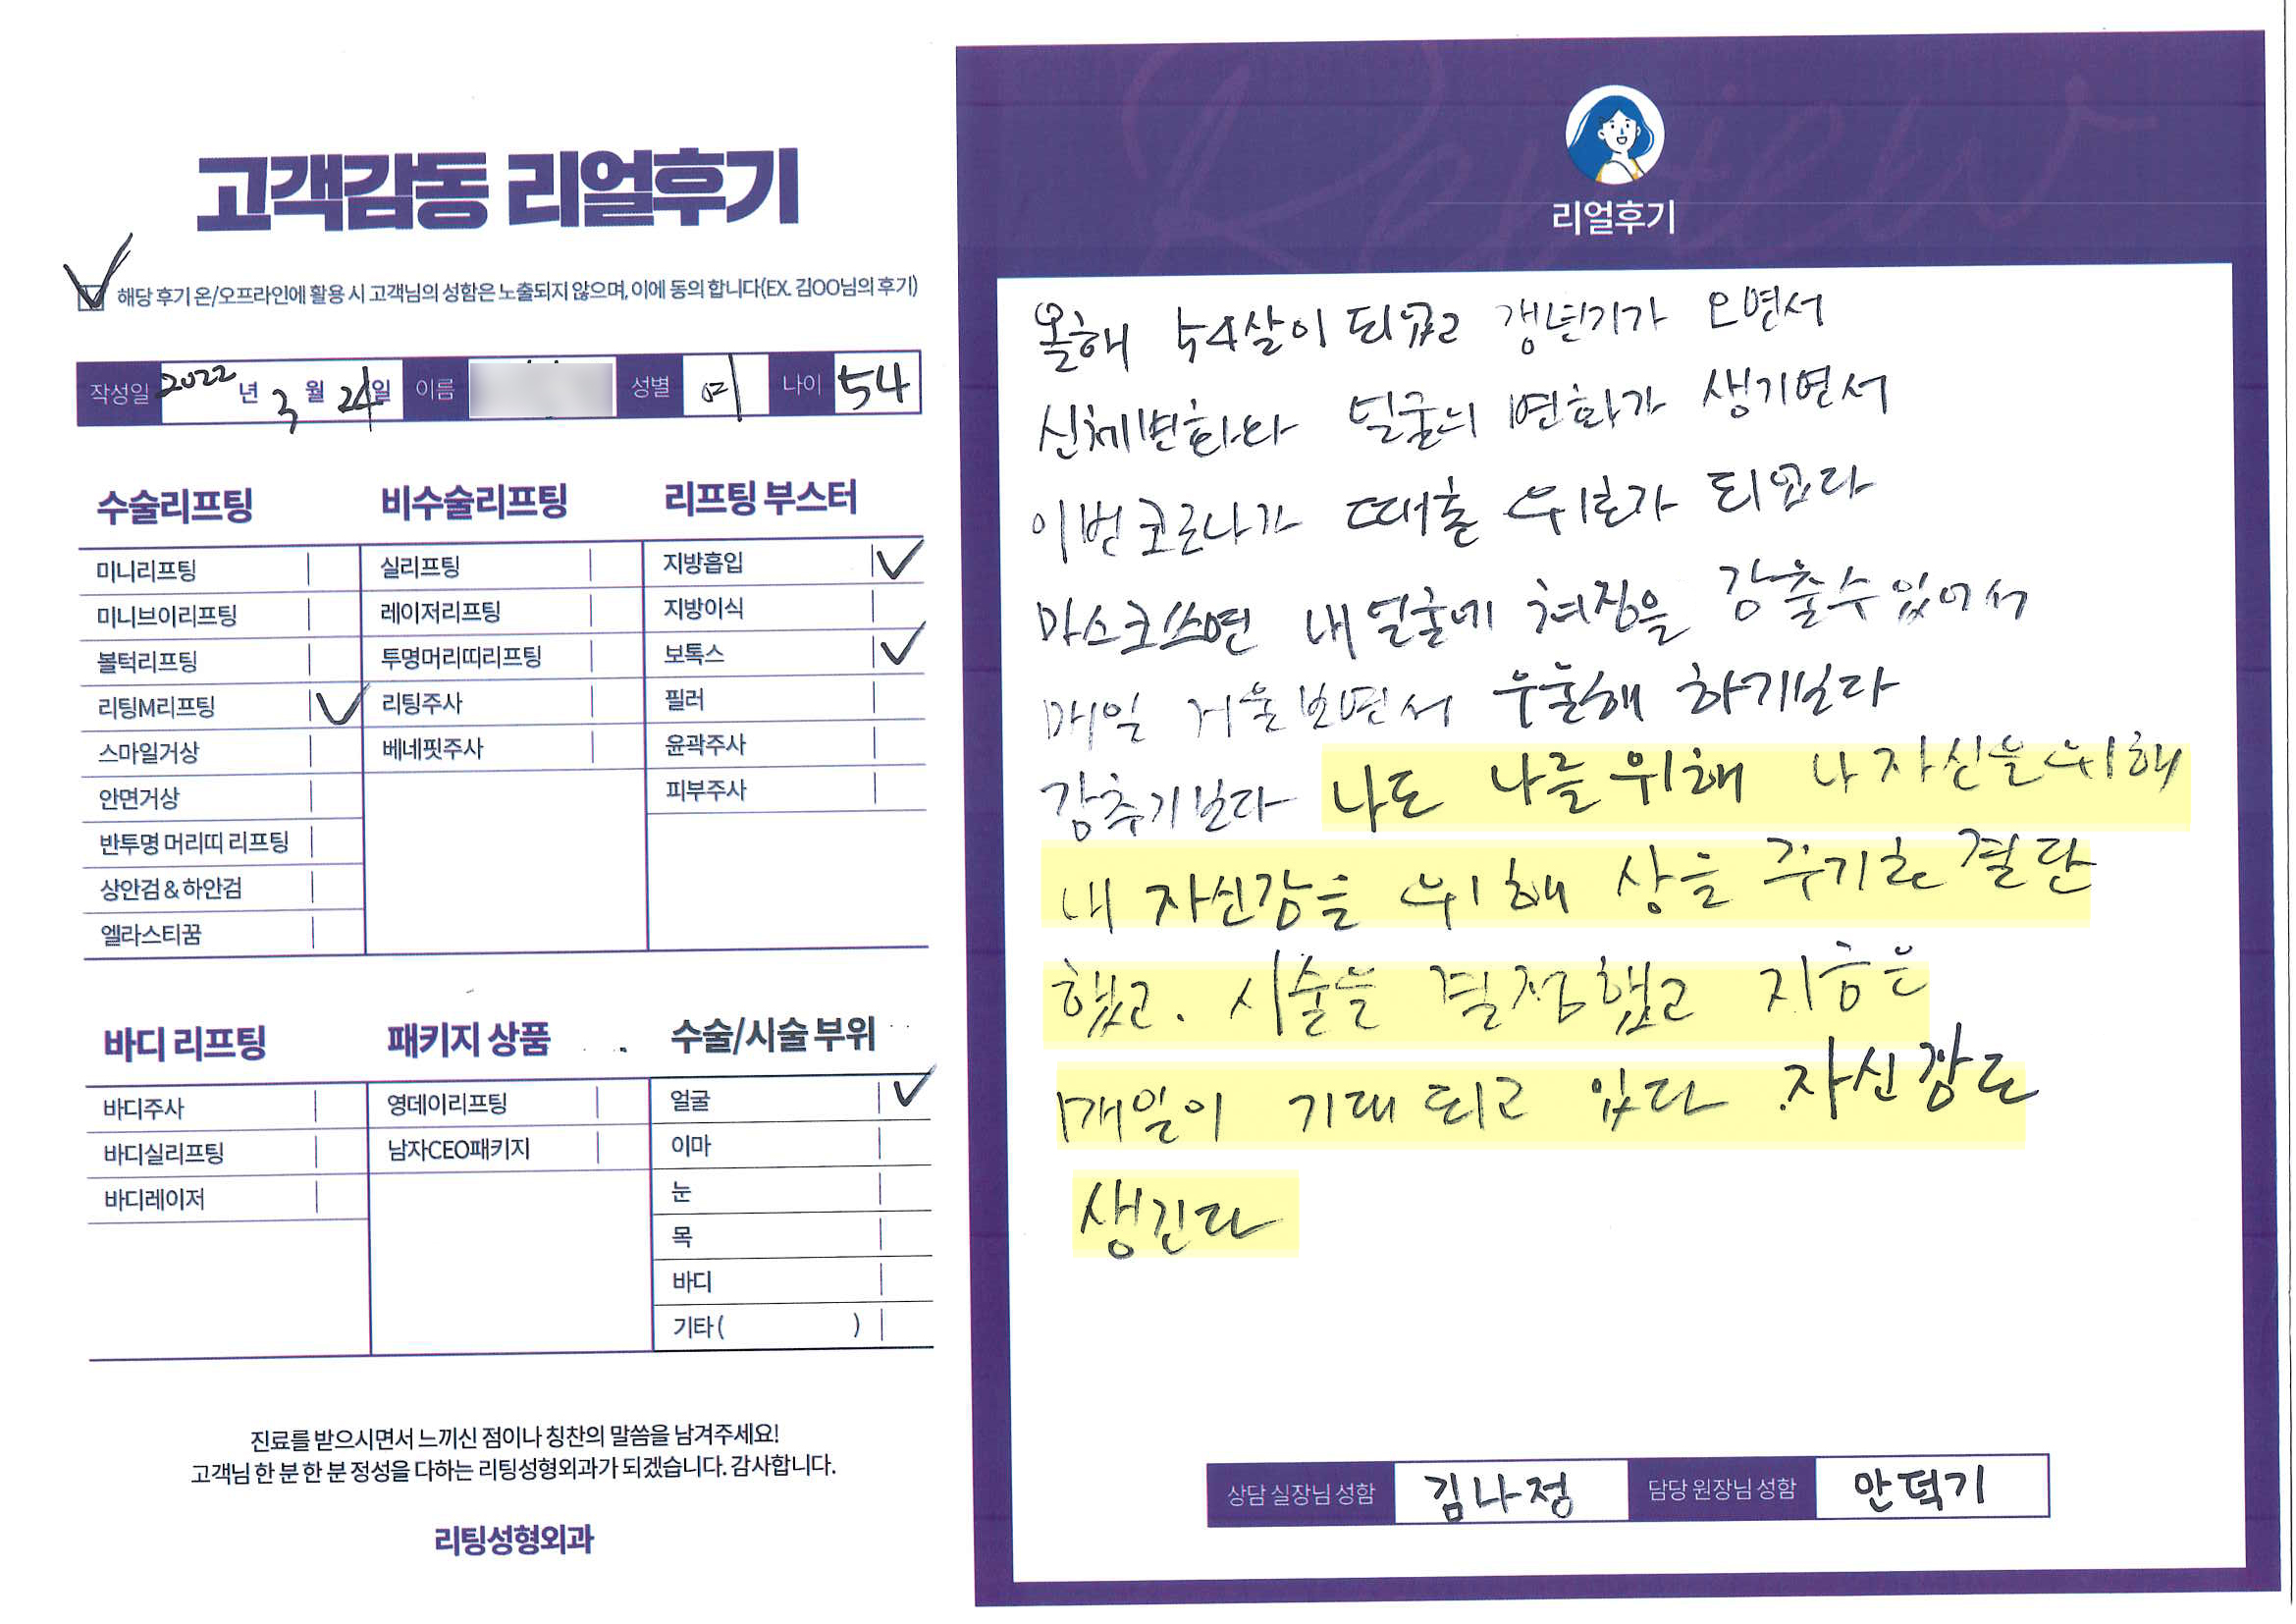 고객감동 리얼후기
해당 후기 온/오프라인에 활용 시 고객님의 성함은 노출되지 않으며, 이에 동의 합니다(EX. 김OO님의 후기)
작성일 2022 년 3 월 24 일 이름 성별 여 나이 54
수술리프팅
미니리프팅
미니브이리프팅
볼턱리프팅
리팅M리프팅
스마일거상
안면거상
반투명 머리띠 리프팅
상안검 & 하안검
엘라스티꿈
비수술리프팅
실리프팅
레이저리프팅
투명머리띠리프팅
리팅주사
베네핏주사
리프팅 부스터
지방흡입
지방이식
보톡스
필러
윤곽주사
피부주사
바디 리프팅
바디주사
바디실리프팅
바디레이저
패키지 상품
영데이리프팅
남자CEO패키지
수술/시술 부위
얼굴
이마
눈
목
바디
기타 ( )
진료를 받으시면서 느끼신 점이나 칭찬의 말씀을 남겨주세요!
고객님 한 분 한 분 정성을 다하는 리팅성형외과가 되겠습니다. 감사합니다.
리팅성형외과
Review
리얼후기
올해 54살이 되고 갱년기가 오면서
신체변화와 얼굴의 변화가 생기면서
이번 코로나가 때출 위로가 되였다
마스크쓰면 내 얼굴에 쳐짐을 감출수 있어서
매일 거울보면서 우울해 하기보다
감추기보다 나도 나를 위해 나 자신을 위해
내 자신감을 위해 상을 주기로 결단
했고. 시술을 결정했고 지금은
매일이 기대 되고 있다 자신감도
생긴다
상담 실장님 성함 김나정 담당 원장님 성함 안덕기